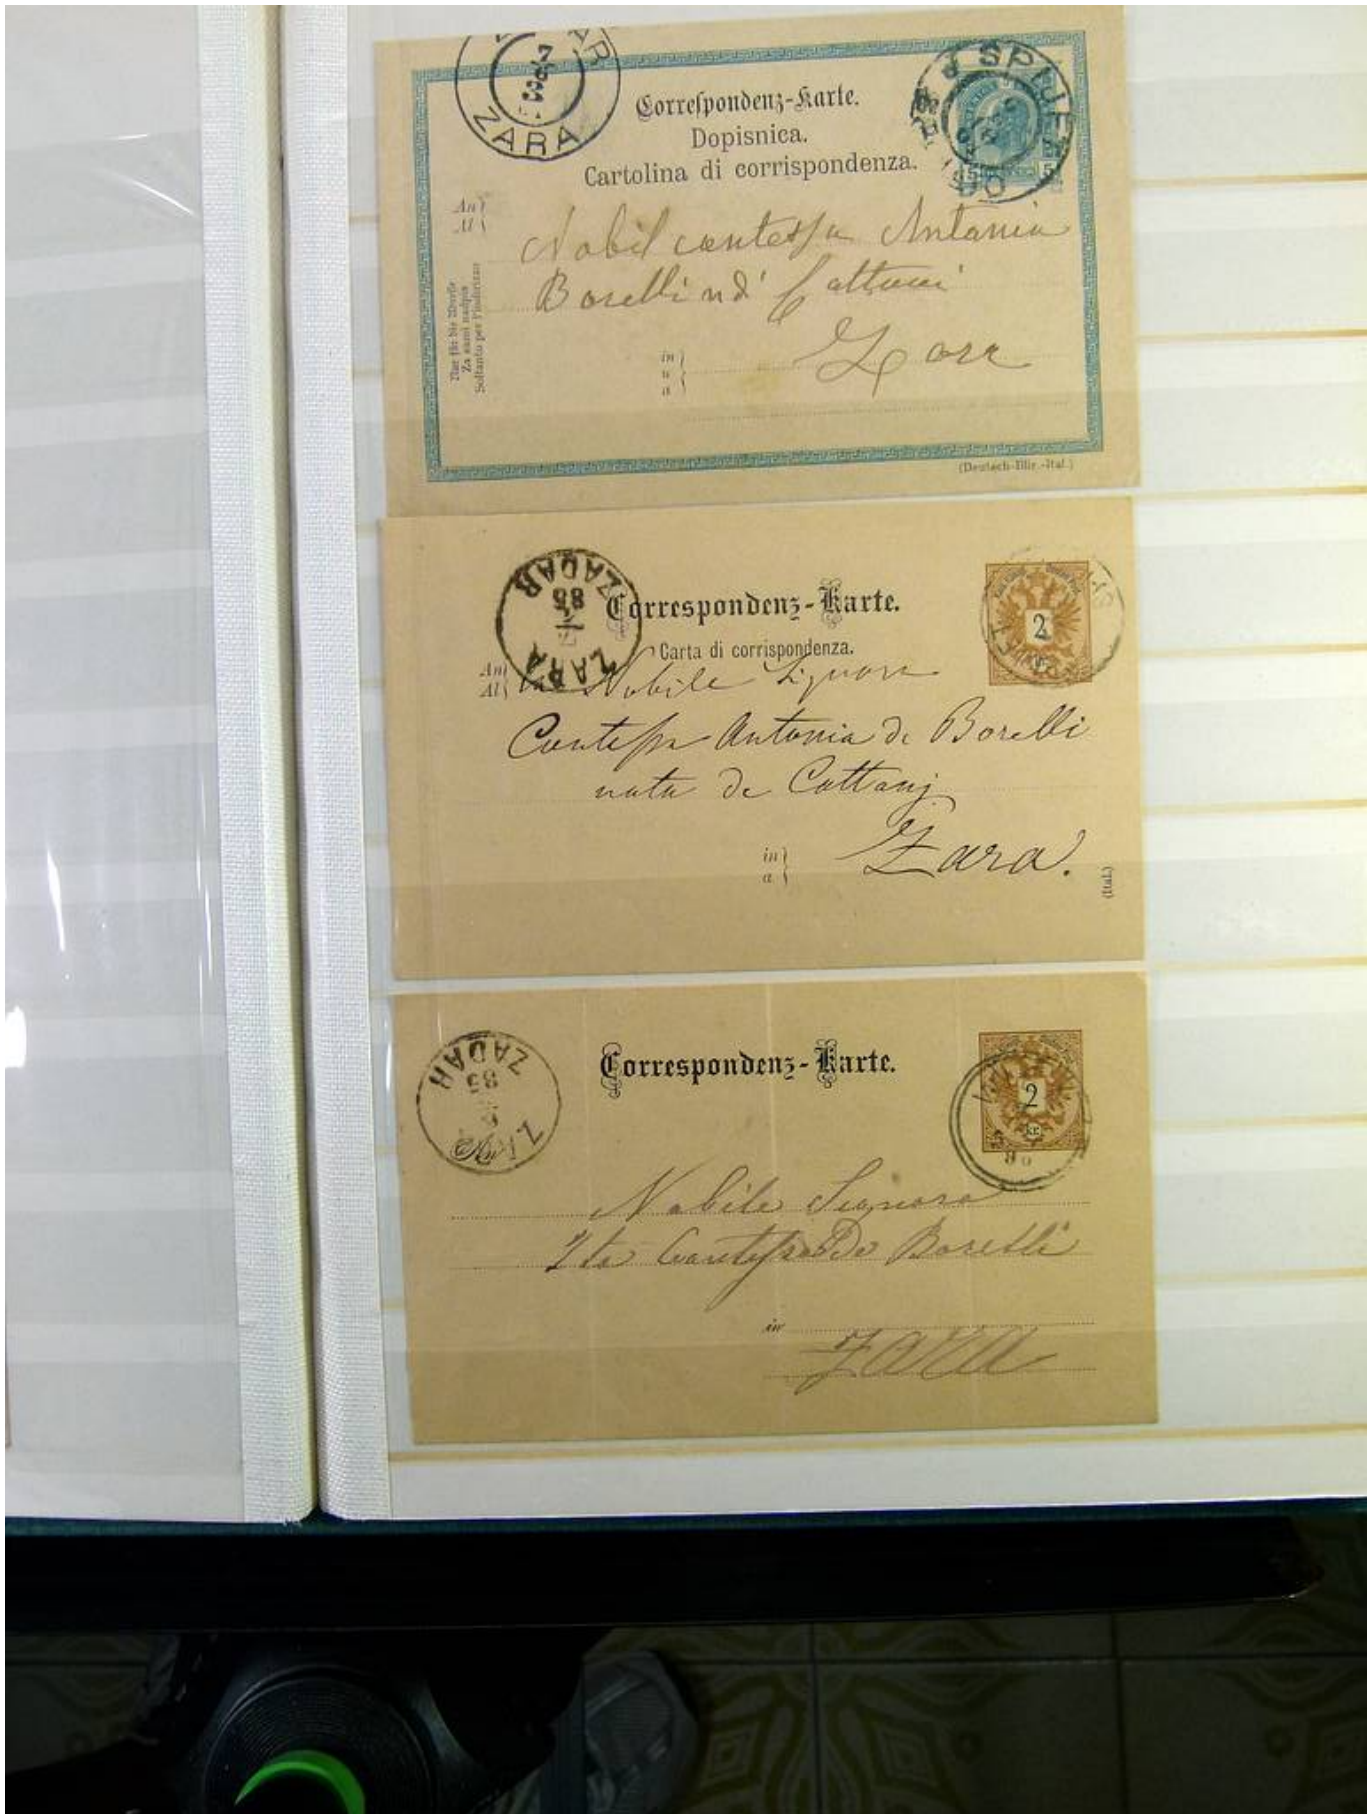 ZARA
7
Correspondenz-Karte.
Dopisnica.
Cartolina di corrispondenza.
SPLJET
5 5
An
Al
Nobil contessa Antonia
Borelli nd' Cattani
Zara
in
u
a
Nur für die Adresse
Za sami nadpis
Soltanto per l'indirizzo
(Deutsch-Illir.-Ital.)
ZADAR
85
ZARA
Correspondenz-Karte.
Carta di corrispondenza.
2
An
Al
Nobile Signora
Contessa Antonia de Borelli
nata de Cattanj
in
a
Zara.
(Ital.)
ZADAR
85
Correspondenz-Karte.
2
kr.
An
Nobile Signora
Contessa De Borelli
in
Zara